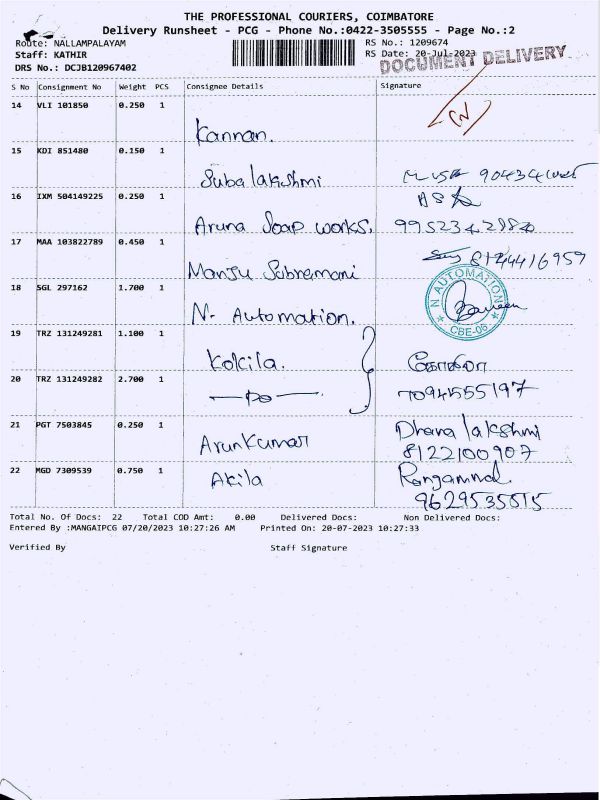 THE PROFESSIONAL COURIERS, COIMBATORE
Delivery Runsheet - PCG - Phone No.:0422-3505555 - Page No.:2
Route: NALLAMPALAYAM RS No.: 1209674
Staff: KATHIR RS Date: 20-Jul-2023
DRS No.: DCJB120967402 DOCUMENT DELIVERY
S No Consignment No Weight PCS Consignee Details Signature
14 VLI 101850 0.250 1 Kannan.
15 KDI 851480 0.150 1 Subalakshmi
16 IXM 504149225 0.250 1 Aruna Soap works.
17 MAA 103822789 0.450 1 Manju Subramani 8124416959
18 SGL 297162 1.700 1 N. Automation. N AUTOMATION CBE-06
19 TRZ 131249281 1.100 1 Kokila. கோகிலா
20 TRZ 131249282 2.700 1 —Do— 7094555197
21 PGT 7503845 0.250 1 ArunKumar Dhana lakshmi
8122100907
22 MGD 7309539 0.750 1 Akila Rangammal
9629535515
Total No. Of Docs: 22 Total COD Amt: 0.00 Delivered Docs: Non Delivered Docs:
Entered By :MANGAIPCG 07/20/2023 10:27:26 AM Printed On: 20-07-2023 10:27:33
Verified By Staff Signature